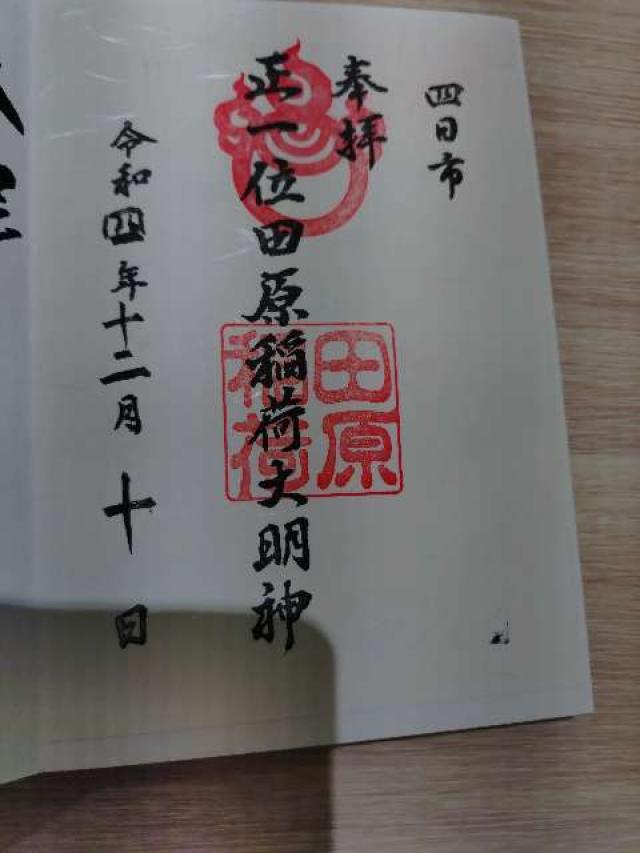 四日市
奉拝
正一位田原稲荷大明神
田原
稲荷
令和四年十二月十日